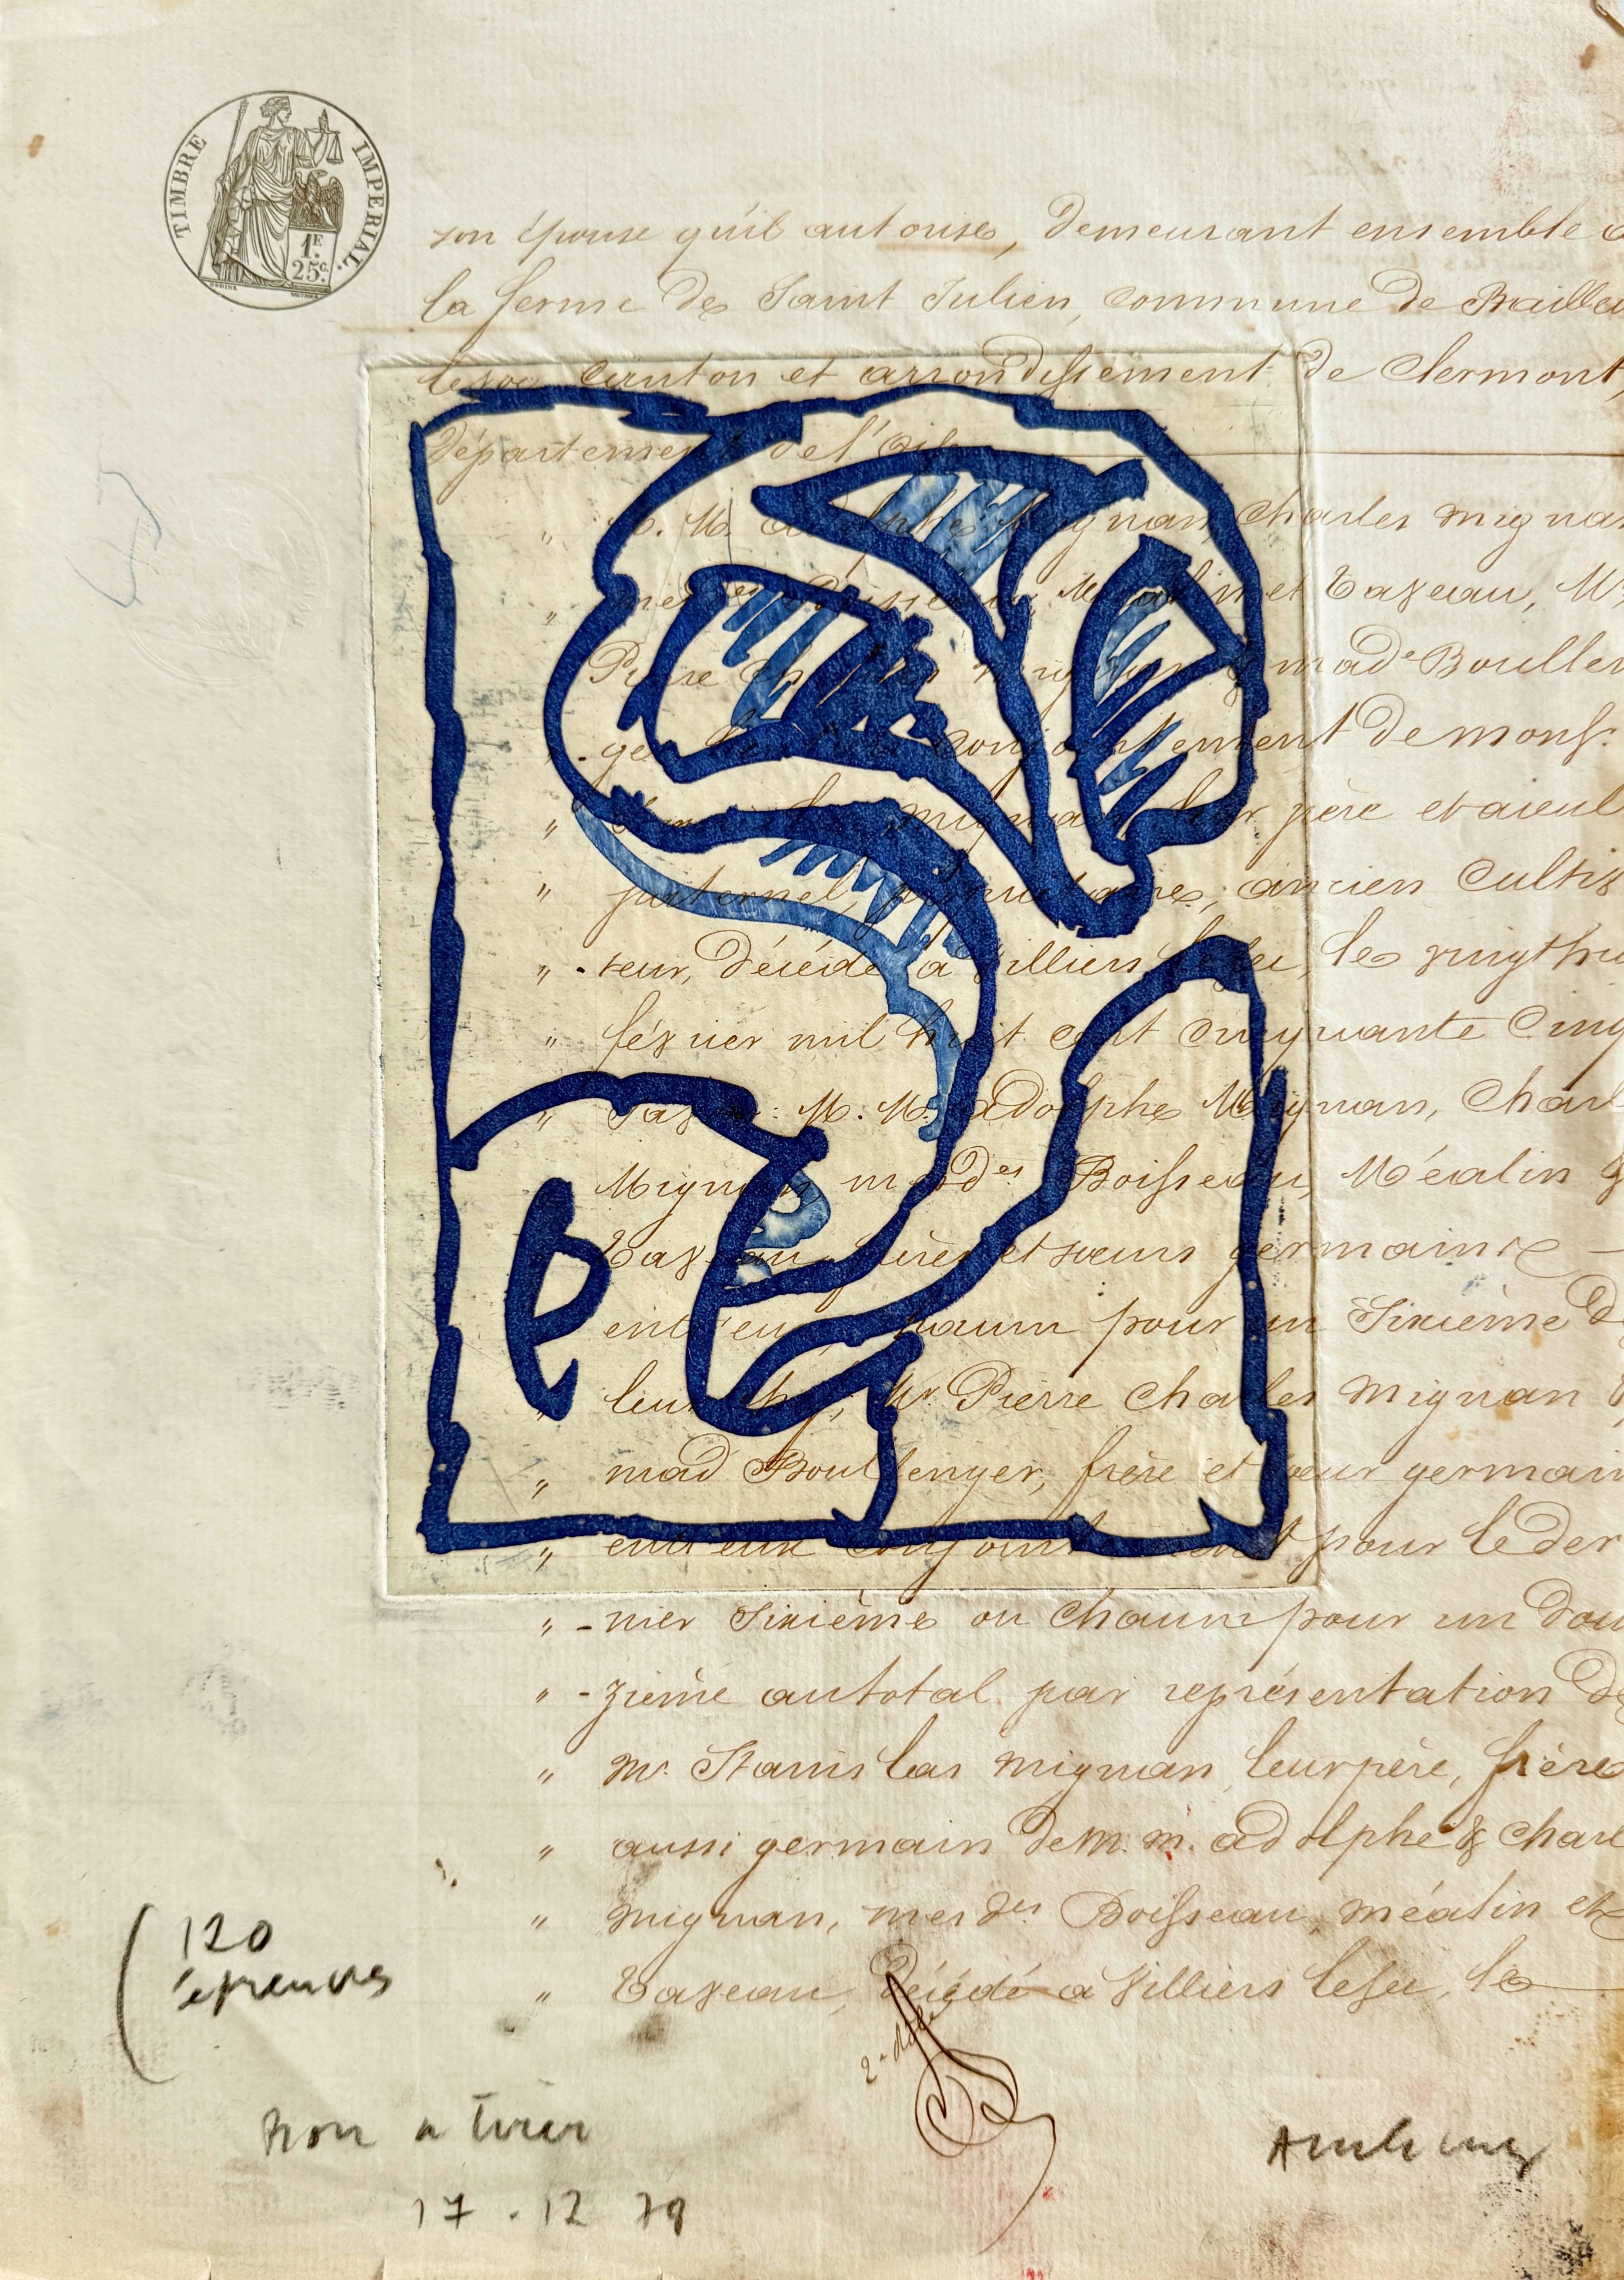 TIMBRE IMPERIAL.
1F.
25c.
son épouse qu'il autorise, demeurant ensemble à
la ferme de Saint Julien, commune de
canton et arrondissement de Clermont,
Département de l'Oise
" M. M. Mignan, Charles Migna
" et Tazeau, M
Pierre Mad.e Boullen
- conjointement de mons.
" Mignan, leur père et aieul
" paternel, propriétaire, ancien Cultiv
" - teur, Décédé à Villiers le, le vingt hui
" février mil huit cent cinquante cinq
" M. M. adolphe Mignan, Charl
Mignan, m.des Boisseau, Méalin &
Tazeau, frères et sœurs germains
entr'eux chacun pour un Sixième d
" leur M.r Pierre Charles Mignan &
" mad Boullenger, frère et sœur germain
" entr'eux conjointement pour le der
" - nier Sixième ou chacun pour un dou
" - zième au total par représentation de
" M.r Stanislas Mignan, leur père, frère
" aussi germain de M. M. adolphe & Charl
" Mignan, mes des Boisseau, Méalin et
" Tazeau, Décédé à Villiers lesec, le
(120
épreuves
2e rôle
bon a tirer
17 . 12 79